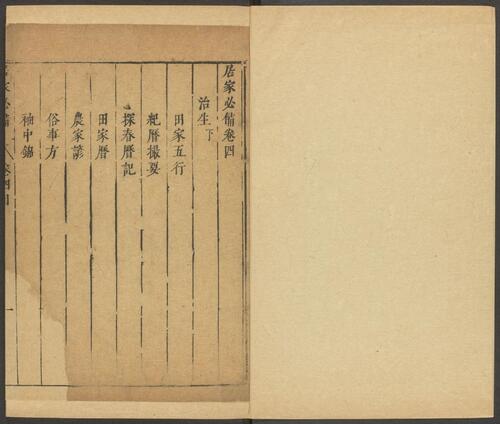 居家必備卷四
治生下
田家五行
紀曆撮要
探春曆記
田家曆
農家諺
俗事方
袖中錦
居家必備
卷四
一